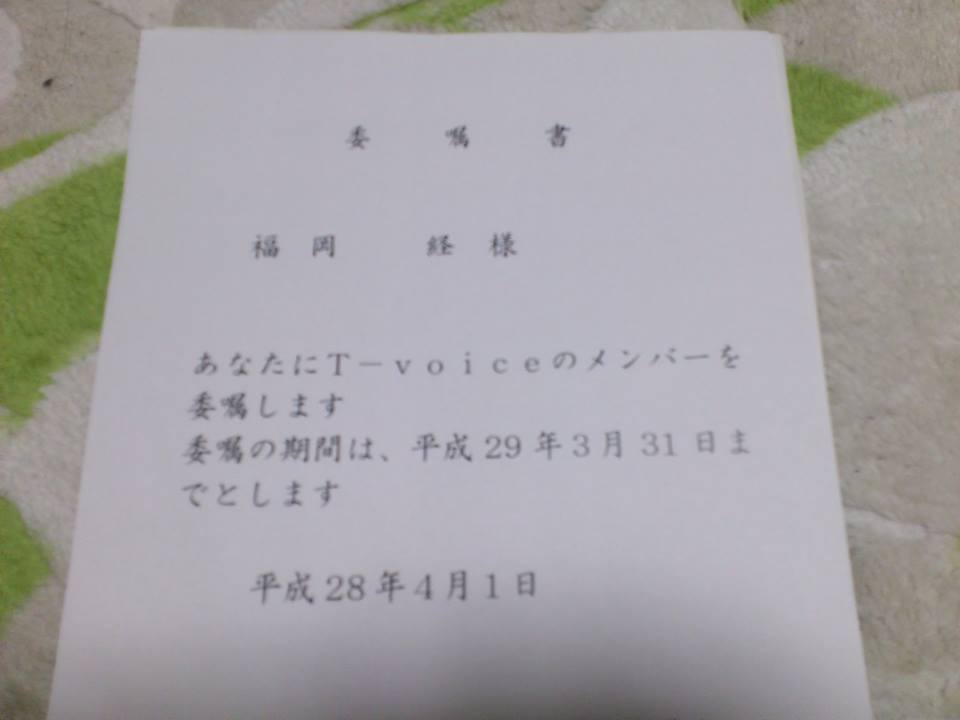 委嘱書
福岡 経様
あなたにT－voiceのメンバーを
委嘱します
委嘱の期間は、平成29年3月31日ま
でとします
平成28年4月1日